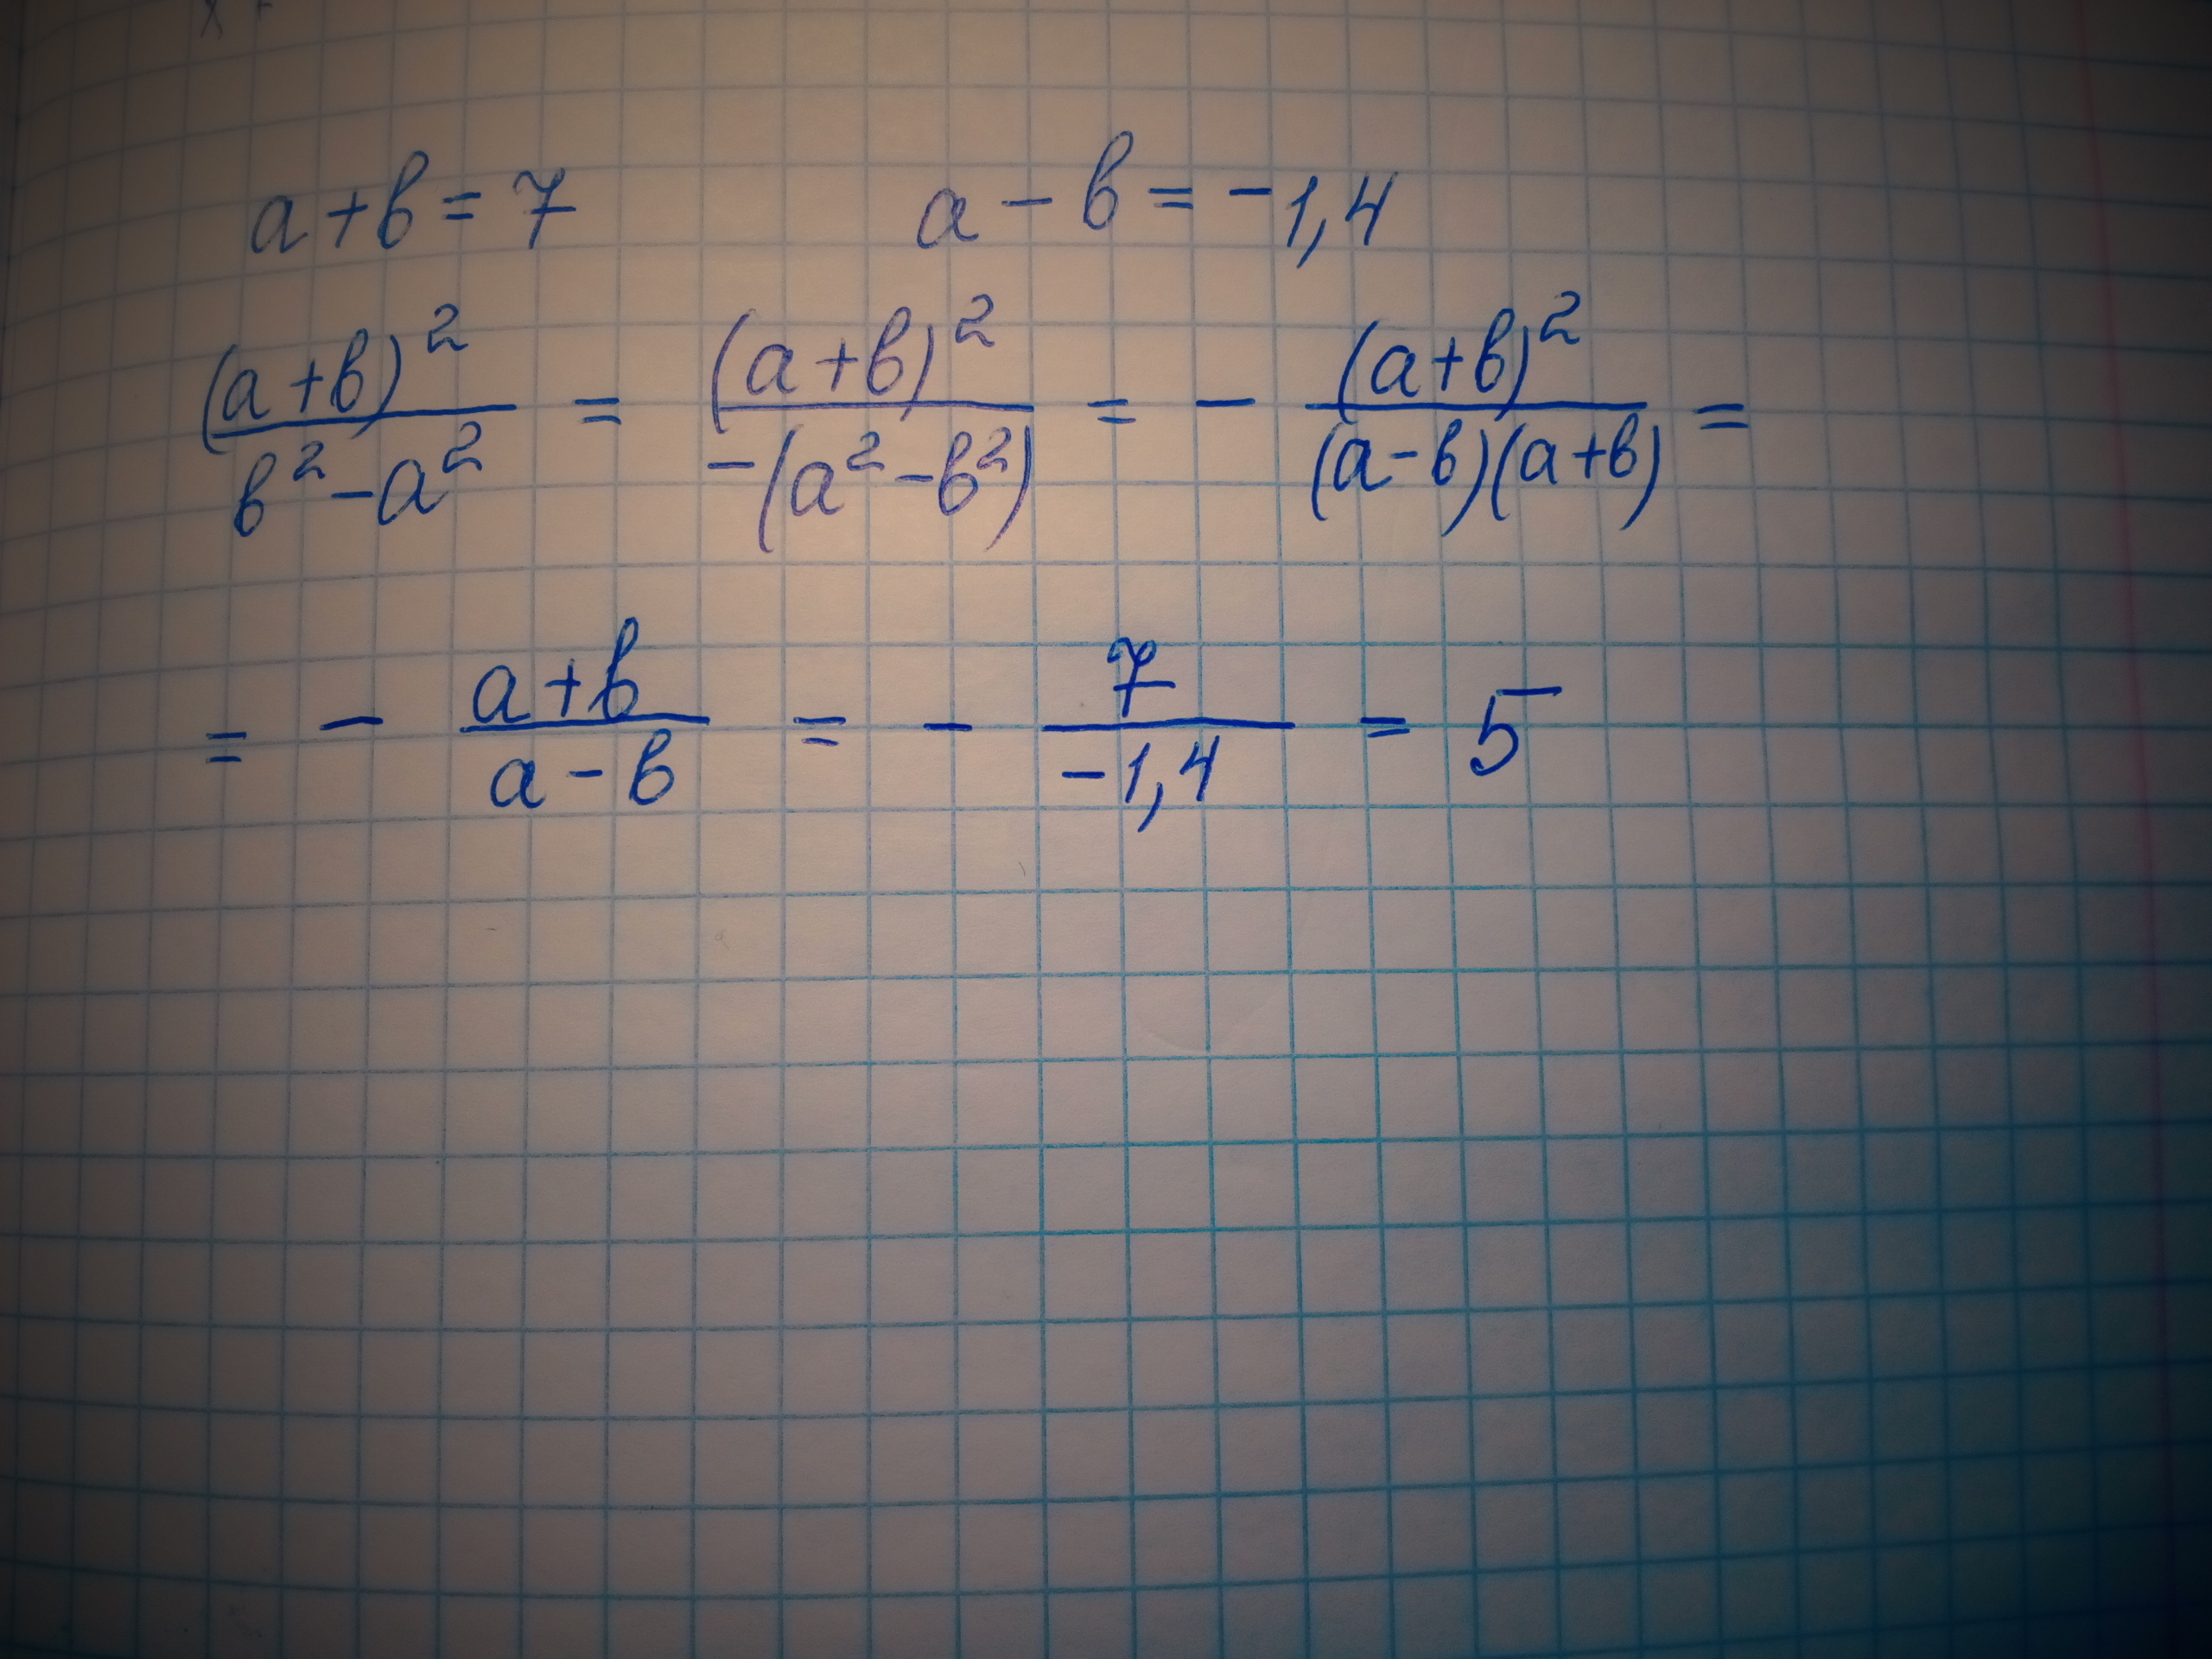 a+b=7 a-b=-1,4
(a+b)²/(b²-a²) = (a+b)²/-(a²-b²) = - (a+b)²/((a-b)(a+b)) =
= - (a+b)/(a-b) = - 7/-1,4 = 5